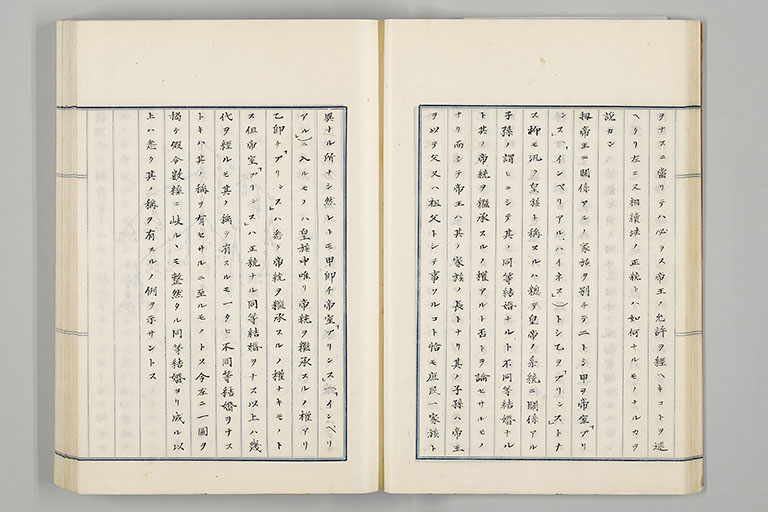 ヲナスニ當リテハ必ラス帝王ノ允許ヲ經ヘキコトヲ述
ヘタリ左ニ又相續法ノ正統トハ如何ナルモノナルカヲ
説カン
抑帝王ニ關係アルノ家族ヲ別チテ二トシ甲ヲ帝室「プリ
ンス」（「インペリアル、ハイネス」）トシ乙ヲ「プリンス」トナ
ス抑モ汎ク皇族ト稱スルハ總テ皇帝ノ系統ニ關係アル
子孫ノ謂ヒニシテ其ノ同等結婚ナルト不同等結婚ナル
ト其ノ帝統ヲ繼承スルノ權アルト否トヲ論セサルモノ
ナリ而シテ帝王ハ其ノ家族ノ長トナリ其ノ子孫ハ帝王
ヲ以テ父又ハ祖父トシテ事ツルコト恰モ庶民一家族ト
異ナル所ナシ然レトモ甲卽チ帝室「プリンス」（「インペリ
アル」）ニ入ルモノハ皇族中唯リ帝統ヲ繼承スルノ權アリ
乙卽チ「プリンス」ハ悉ク帝統ヲ繼承スルノ權ナキモノト
ス但帝室「プリンス」ハ正統ナル同等結婚ヲナス以上ハ幾
代ヲ經ルモ其ノ稱ヲ有スルモ一タヒ不同等結婚ヲナス
トキハ其ノ稱ヲ有セサルニ至ルモノトス今左ニ一圖ヲ
揭ケ假令數線ニ岐ルヽモ整然タル同等結婚ヨリ成ル以
上ハ悉ク其ノ稱ヲ有スルノ例ヲ示サントス